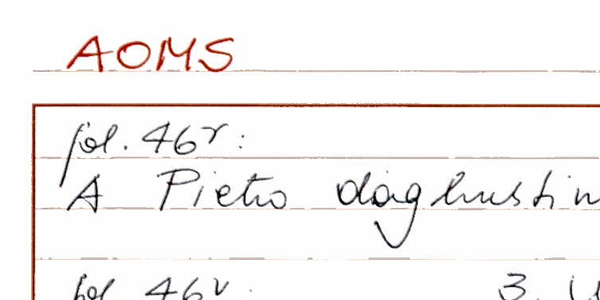 AOMS
fol. 46r:
A Pietro daghustin
fol. 46v. 3.